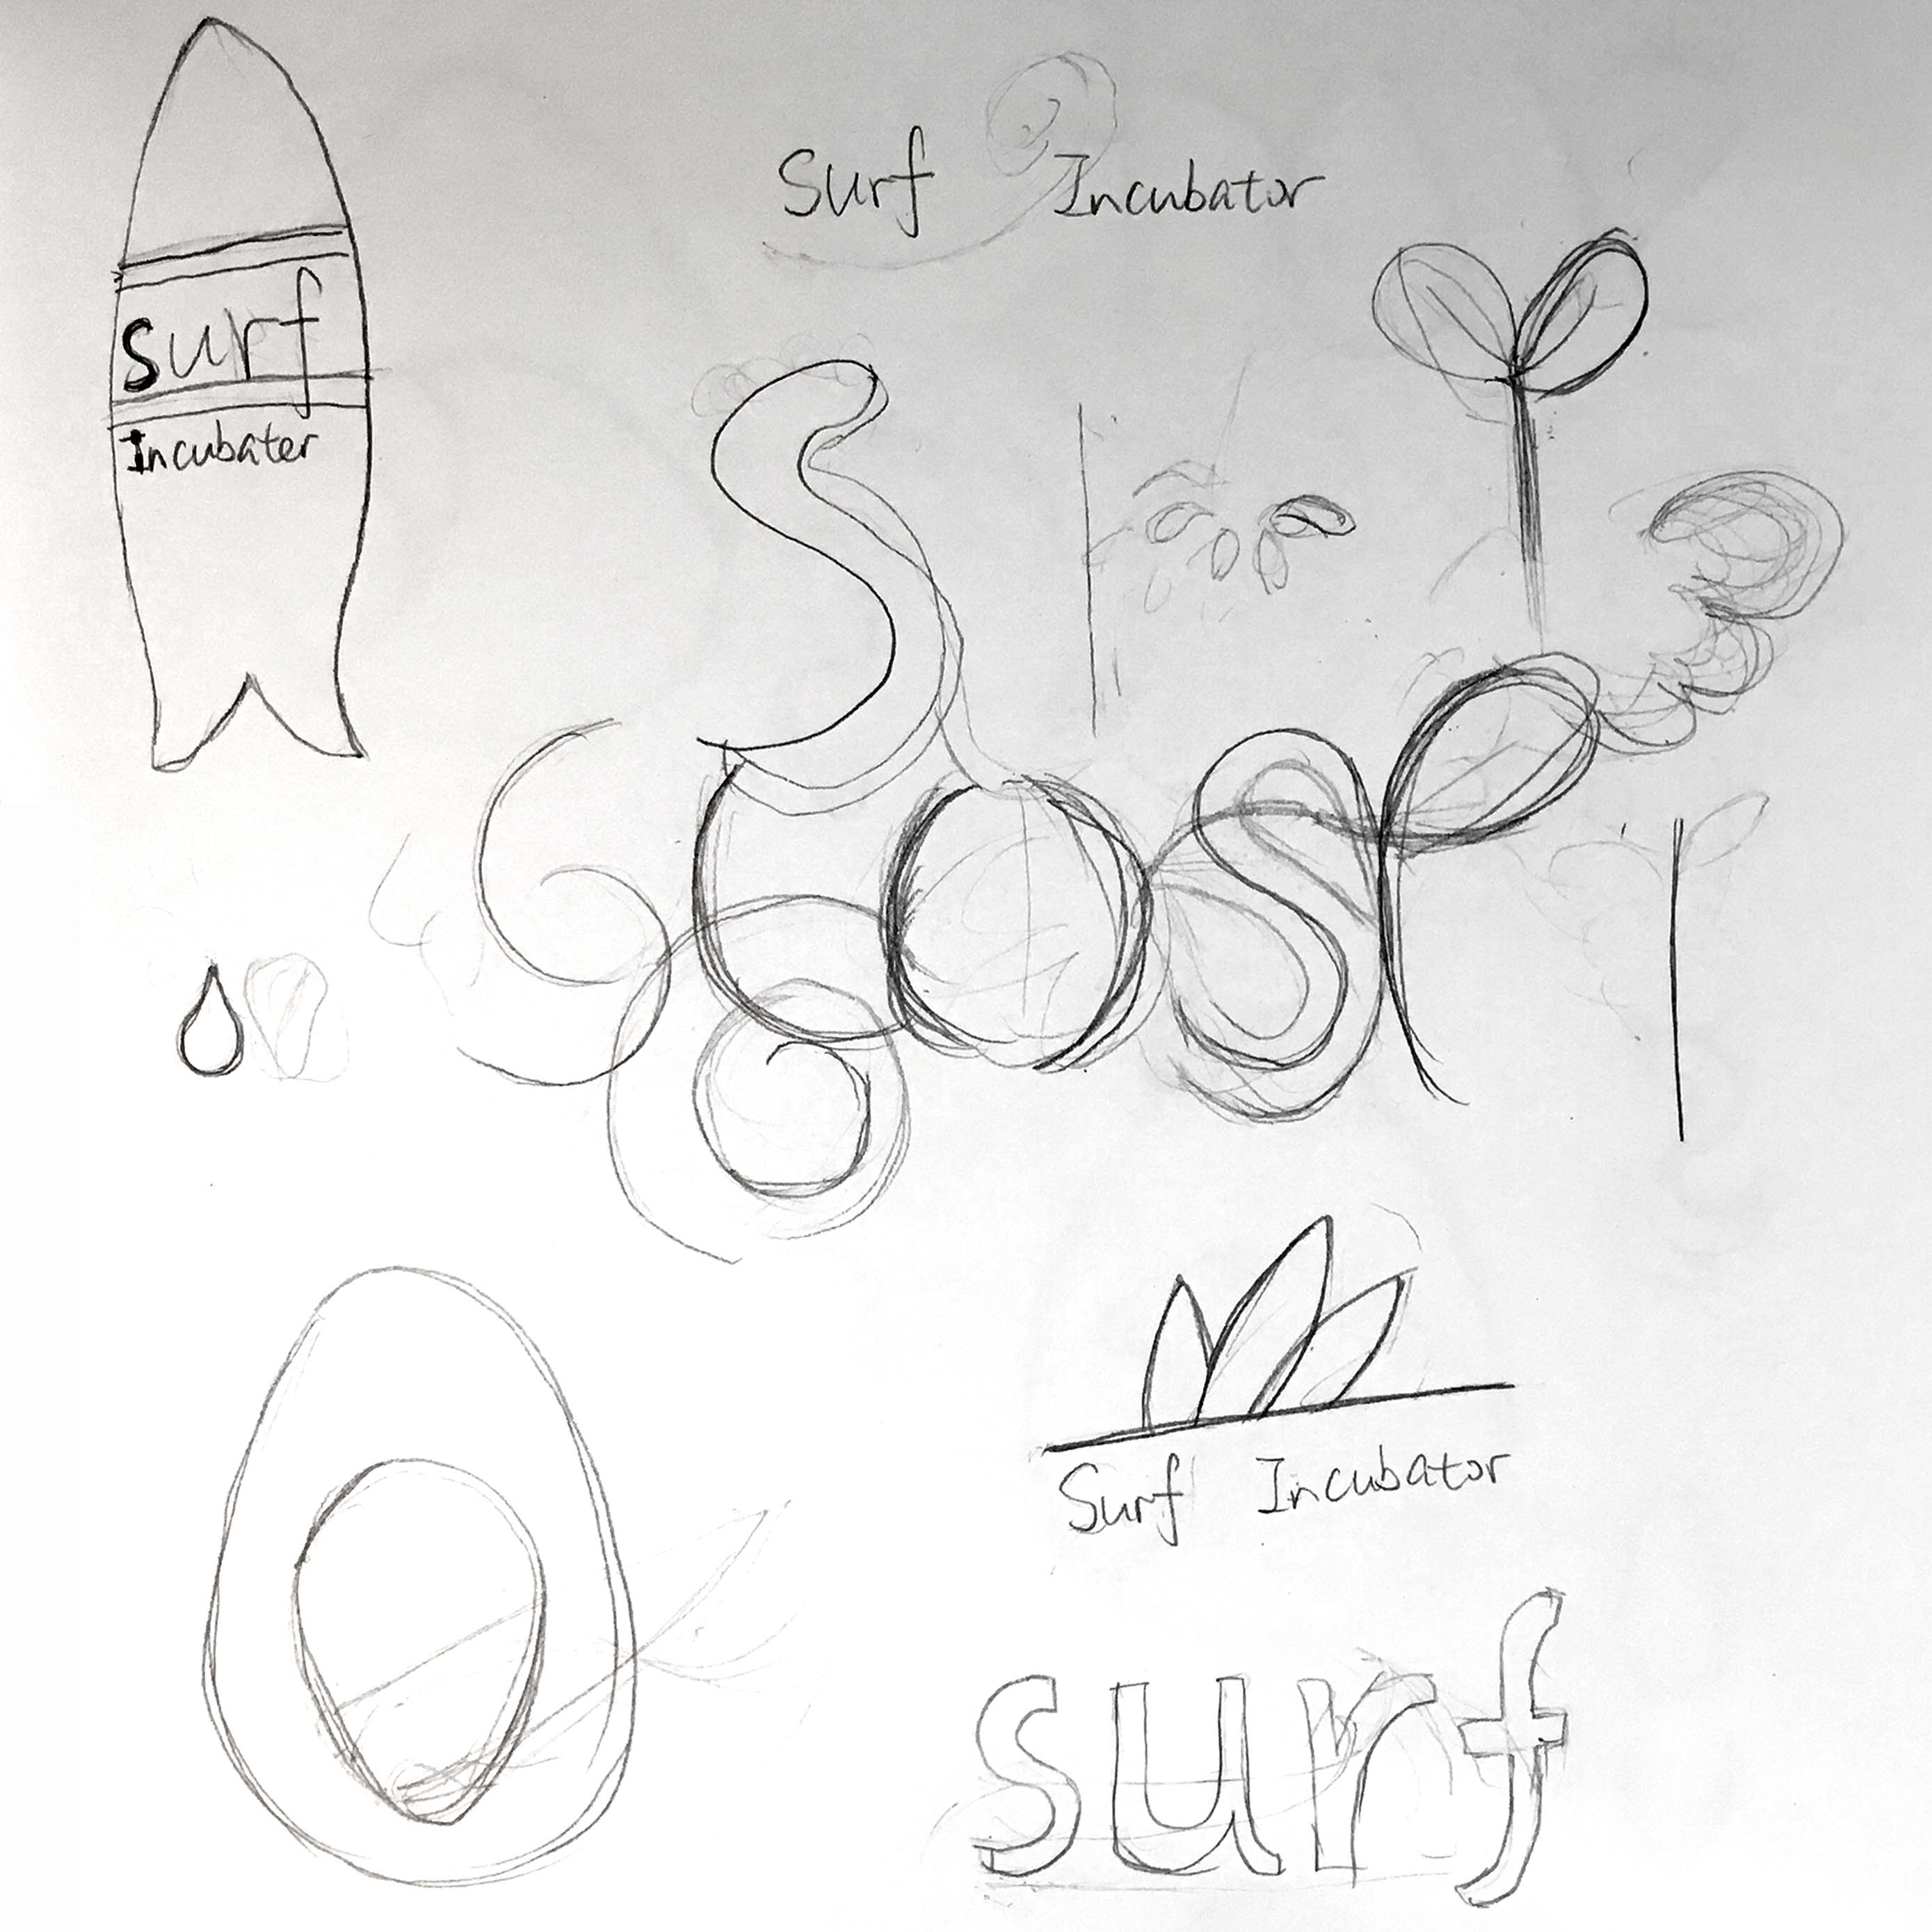 Surf Incubator
surf
Incubater
Surf Incubator
surf